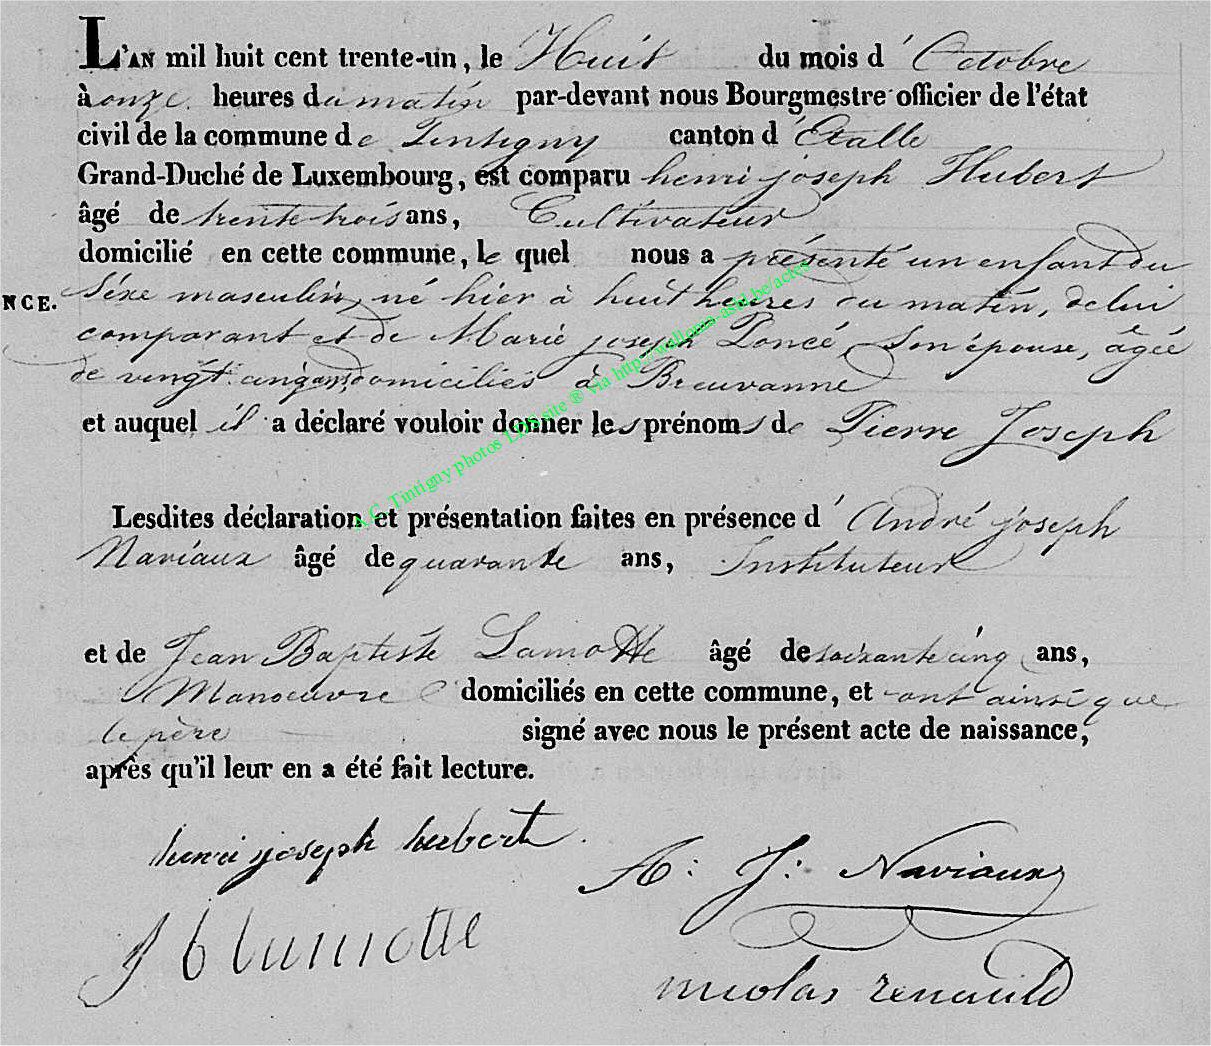 L'AN mil huit cent trente-un, le Huit du mois d'Octobre
à onze heures du matin par-devant nous Bourgmestre officier de l'état
civil de la commune de Tintigny canton d'Etalle
Grand-Duché de Luxembourg, est comparu henri joseph Hubert
âgé de trente trois ans, Cultivateur
domicilié en cette commune, le quel nous a présenté un enfant du
NCE.
Séxe masculin, né hier à huit heures du matin, de lui
comparant et de Marie joseph Poncé, Son épouse, âgée
de vingt cinq ans, domiciliés à Breuvanne
et auquel il a déclaré vouloir donner les prénoms de Pierre Joseph
A.C. Tintigny photos LDS site ® via http://wallonia-asbl.be/actes
Lesdites déclaration et présentation faites en présence d'André joseph
Naviaux âgé de quarante ans, Instituteur
et de Jean Baptiste Lamotte âgé de soixante cinq ans,
Manoeuvre domiciliés en cette commune, et ont ainsi que
le père signé avec nous le présent acte de naissance,
après qu'il leur en a été fait lecture.
henri joseph hubert
A: J: Naviaux
J b lamotte
nicolas renauld